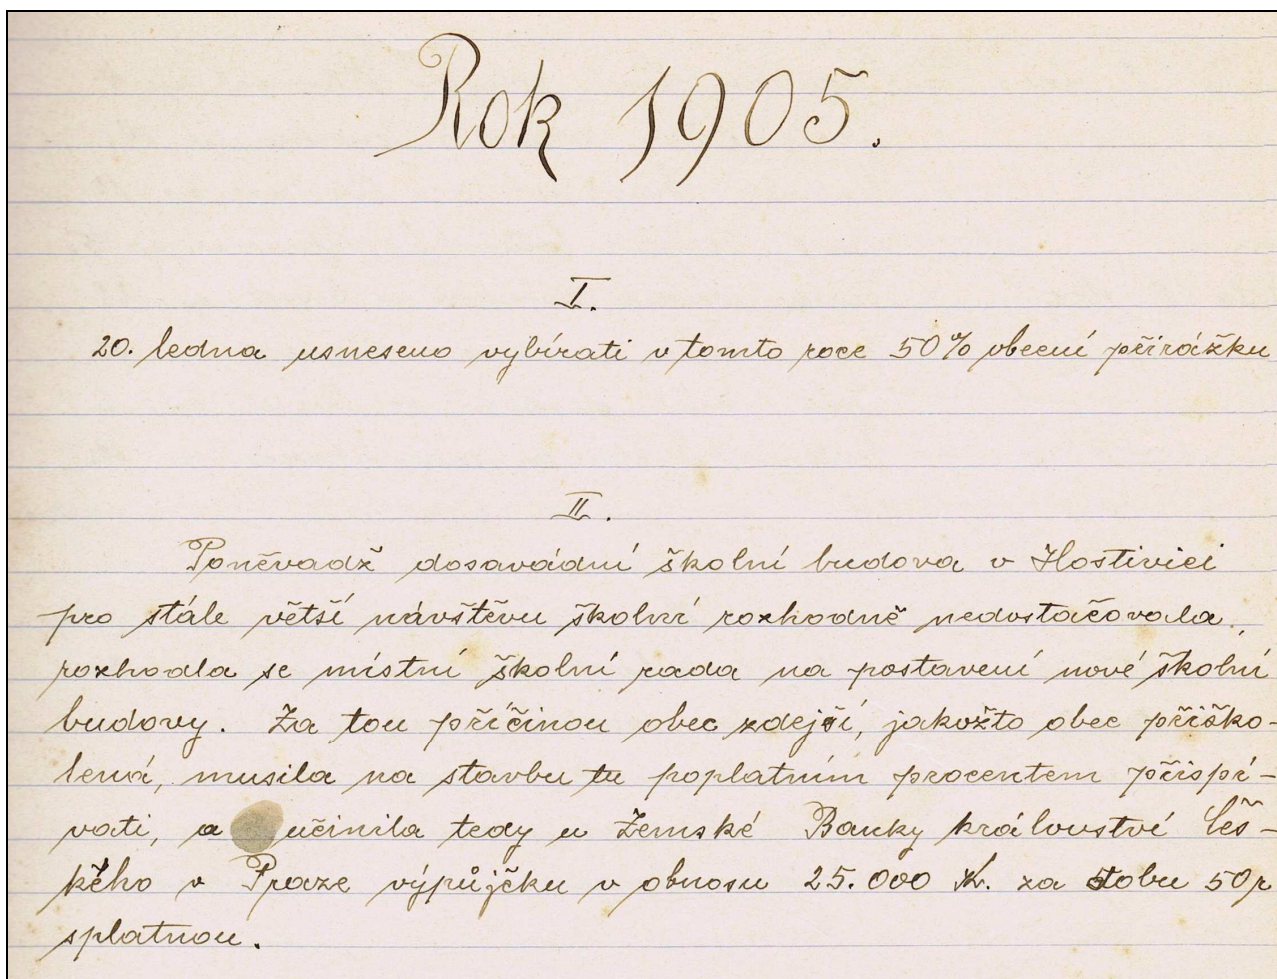 Rok 1905.
I.
20. ledna usneseno vybírati v tomto roce 50% obecní přirážku
II.
Poněvadž dosavádní školní budova v Hostivici
pro stále větší návštěvu školní rozhodně nedostačovala,
rozhodla se místní školní rada na postavení nové školní
budovy. Za tou příčinou obec zdejší, jakožto obec přiško-
lená, musila na stavbu tu poplatním procentem přispí-
vati, a učinila tedy u Zemské Banky království Češ-
kého v Praze výpůjčku v obnosu 25.000 K. za dobu 50 r
splatnou.